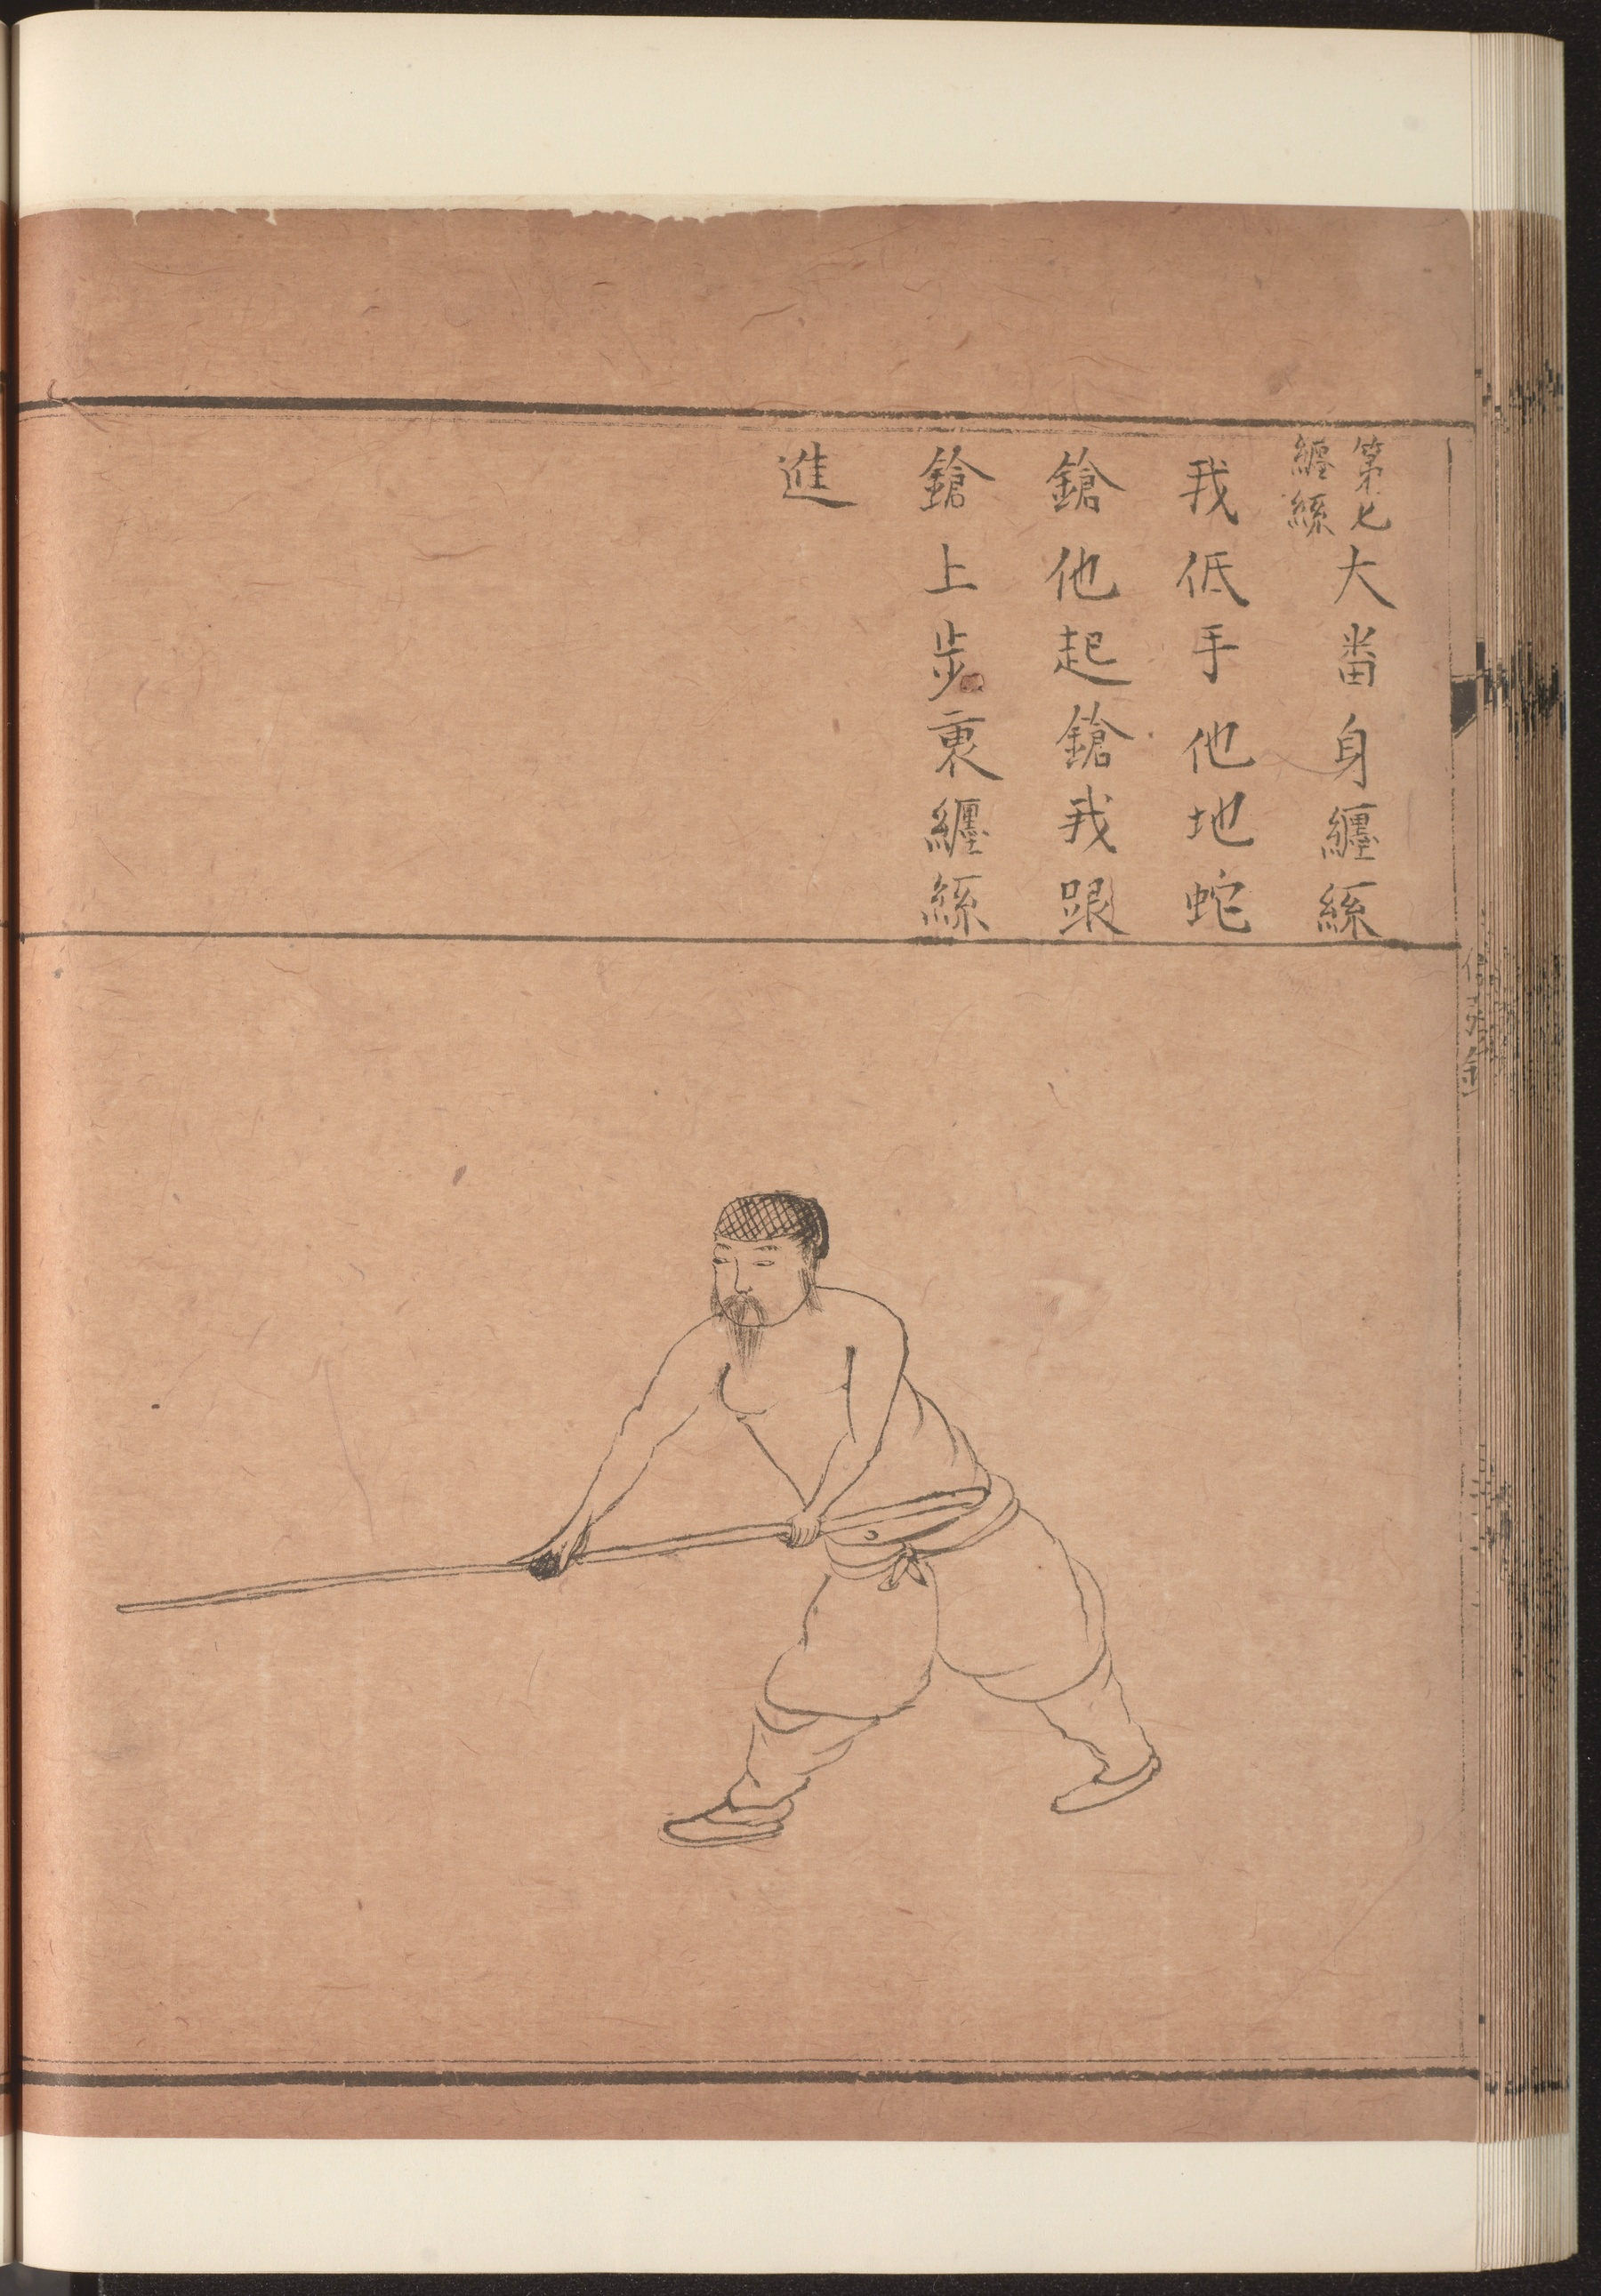 第七
纏絲
大畨身纏絲
我低手他地蛇
鎗他起鎗我跟
鎗上步裹纏絲
進